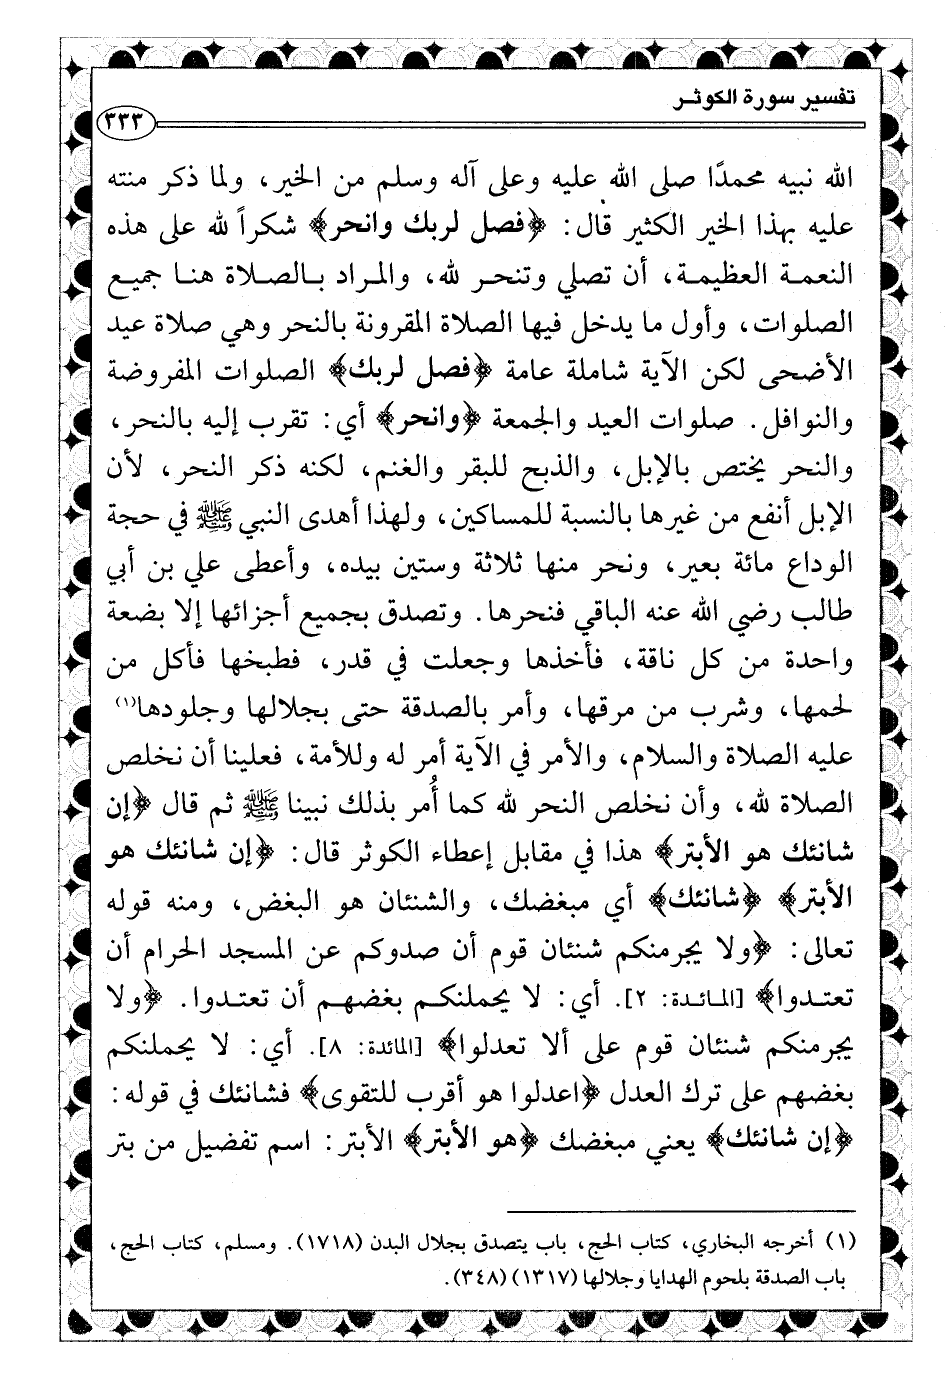 تفسير سورة الكوثـر
٣٣٣
الله نبيه محمدًا صلى الله عليه وعلى آله وسلم من الخير، ولما ذكر منته
عليه بهذا الخير الكثير قال: ﴿فصل لربك وانحر﴾ شكراً لله على هذه
النعمة العظيمة، أن تصلي وتنحر لله، والمراد بالصلاة هنا جميع
الصلوات، وأول ما يدخل فيها الصلاة المقرونة بالنحر وهي صلاة عيد
الأضحى لكن الآية شاملة عامة ﴿فصل لربك﴾ الصلوات المفروضة
والنوافل. صلوات العيد والجمعة ﴿وانحر﴾ أي: تقرب إليه بالنحر،
والنحر يختص بالإبل، والذبح للبقر والغنم، لكنه ذكر النحر، لأن
الإبل أنفع من غيرها بالنسبة للمساكين، ولهذا أهدى النبي ﷺ في حجة
الوداع مائة بعير، ونحر منها ثلاثة وستين بيده، وأعطى علي بن أبي
طالب رضي الله عنه الباقي فنحرها. وتصدق بجميع أجزائها إلا بضعة
واحدة من كل ناقة، فأخذها وجعلت في قدر، فطبخها فأكل من
لحمها، وشرب من مرقها، وأمر بالصدقة حتى بجلالها وجلودها(١)
عليه الصلاة والسلام، والأمر في الآية أمر له وللأمة، فعلينا أن نخلص
الصلاة لله، وأن نخلص النحر لله كما أُمر بذلك نبينا ﷺ ثم قال ﴿إن
شانئك هو الأبتر﴾ هذا في مقابل إعطاء الكوثر قال: ﴿إن شانئك هو
الأبتر﴾ ﴿شانئك﴾ أي مبغضك، والشنئان هو البغض، ومنه قوله
تعالى: ﴿ولا يجرمنكم شنئان قوم أن صدوكم عن المسجد الحرام أن
تعتدوا﴾ [المائدة: ٢]. أي: لا يحملنكم بغضهم أن تعتدوا. ﴿ولا
يجرمنكم شنئان قوم على ألا تعدلوا﴾ [المائدة: ٨]. أي: لا يحملنكم
بغضهم على ترك العدل ﴿اعدلوا هو أقرب للتقوى﴾ فشانئك في قوله:
﴿إن شانئك﴾ يعني مبغضك ﴿هو الأبتر﴾ الأبتر: اسم تفضيل من بتر
(١) أخرجه البخاري، كتاب الحج، باب يتصدق بجلال البدن (١٧١٨). ومسلم، كتاب الحج،
باب الصدقة بلحوم الهدايا وجلالها (١٣١٧) (٣٤٨).